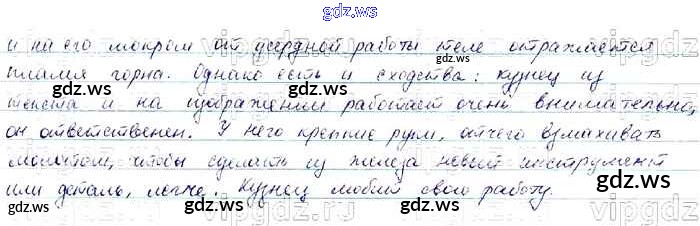 gdz.ws
и на его мокром от усердной работы теле отражается
пламя горна. Однако есть и сходства: кузнец из
текста и на изображении работает очень внимательно,
он ответственен. У него крепкие руки, отчего взмахивать
молотом, чтобы сделать из железа новый инструмент
или деталь, легче. Кузнец любит свою работу.